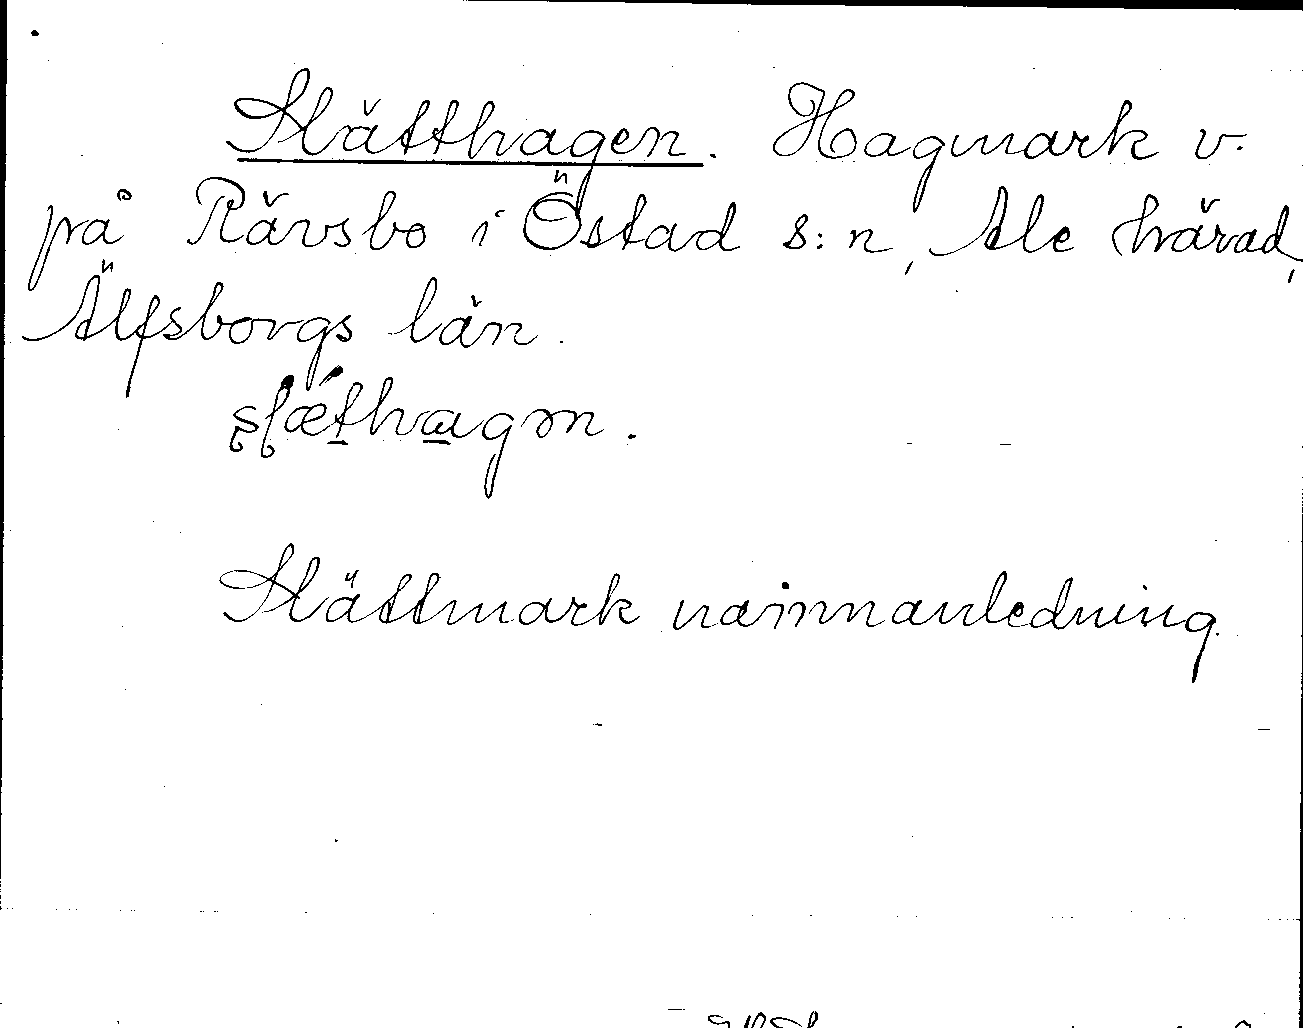 Slätthagen. Hagmark v.
på Rävsbo i Östad s:n, Ale härad,
Älfsborgs län.
slǽthagən.
Slättmark namnanledning.